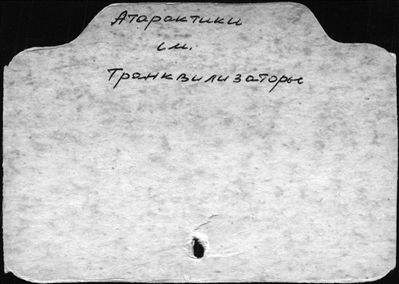 Атарактики
см.
Транквилизаторы